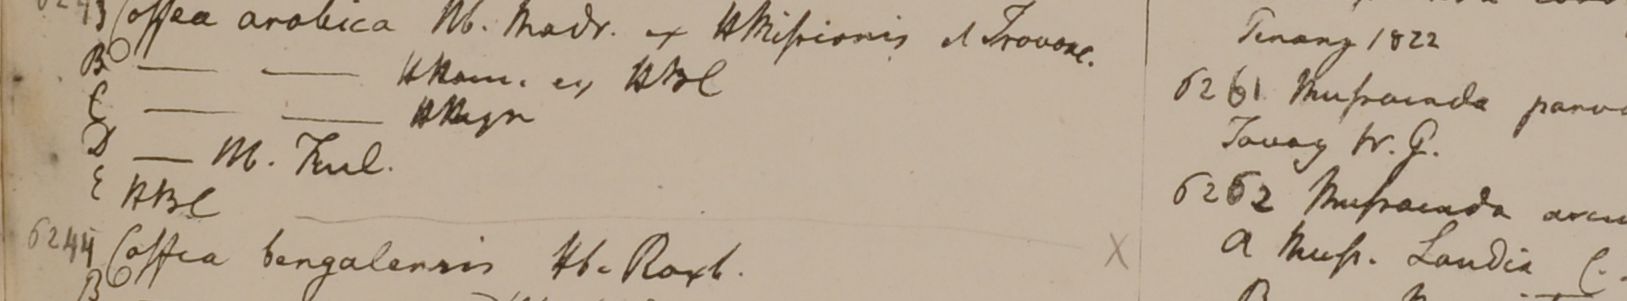 6243 Coffea arabica Hb. Madr. ex HMissionis et Travanc.
B — — HHam. ex HBC
C — — HWight
D — M. Tul.
E HBC
6244 Coffea bengalensis Hb. Roxb. X
B
Penang 1822
6261 Mussaenda parv
Tavoy W. G.
6262 Mussaenda
a Muss. Landia C.
B